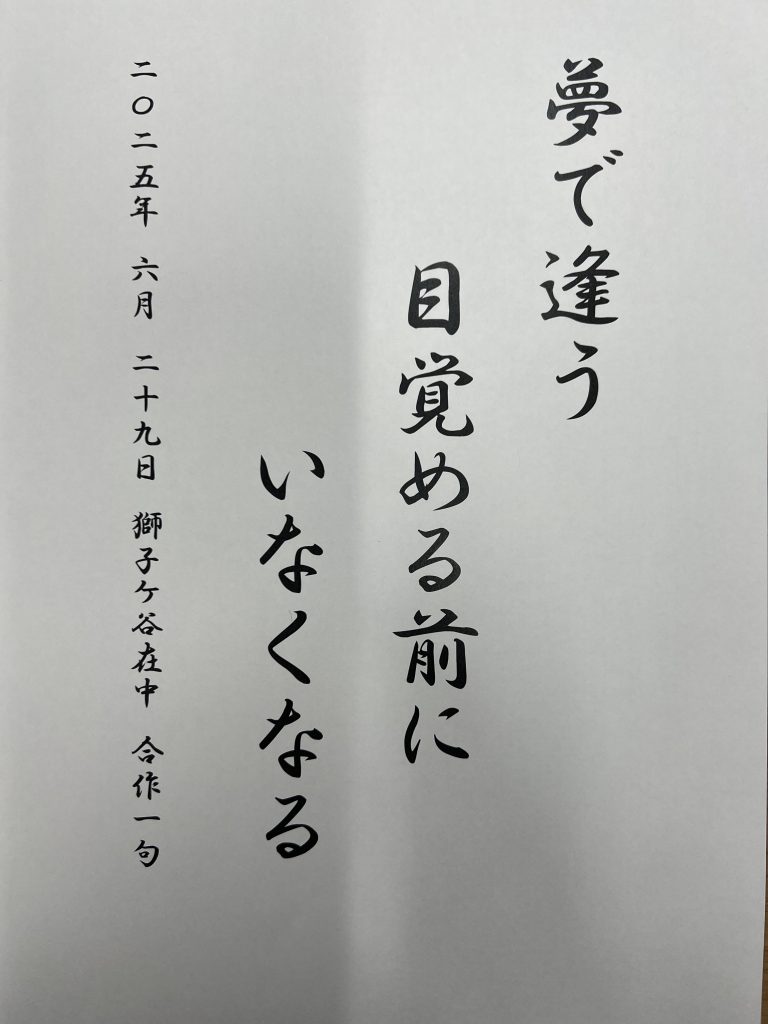 夢で逢う
目覚める前に
いなくなる
二〇二五年 六月 二十九日 獅子ケ谷在中 合作一句